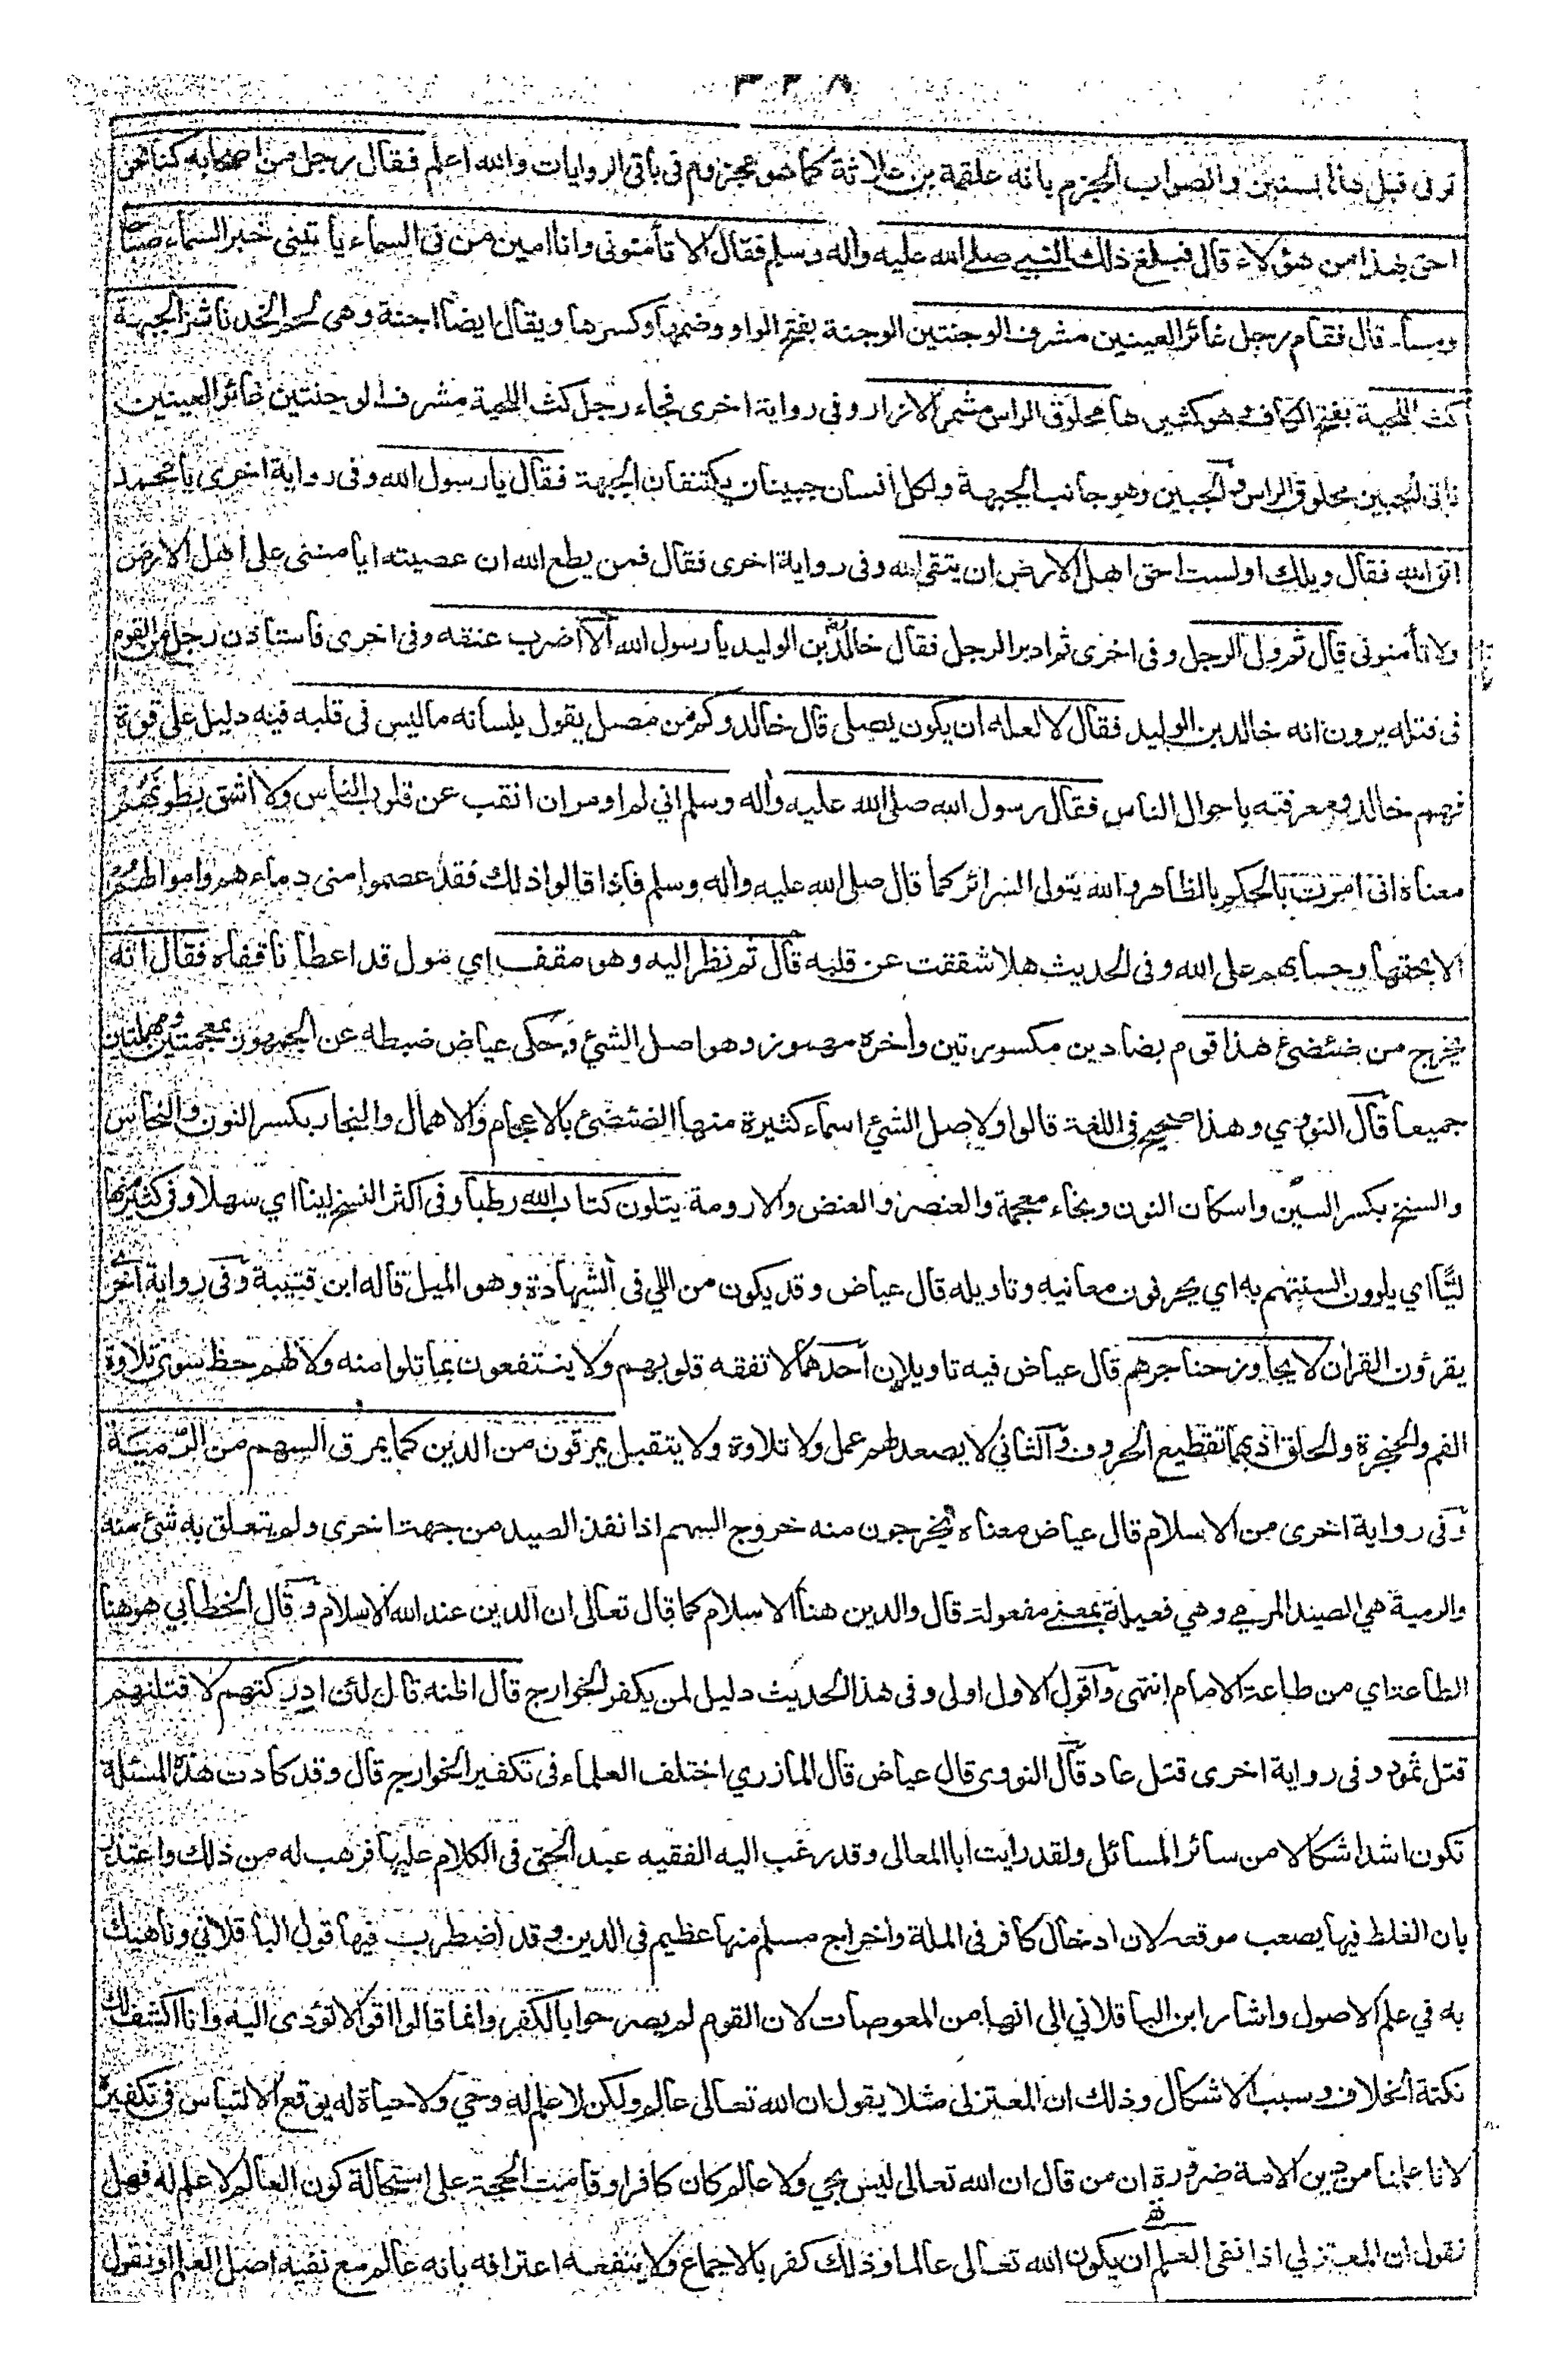 ٣٣٨
توفى قبل هذا بسنين والصواب الجزم بانه علقمة بن علاثة كما هو مجزوم فى باقى الروايات والله اعلم فقال رجل من اصحابه كنا نحن
احق بهذا من هؤلاء قال فبلغ ذلك النبي صلى الله عليه واله وسلم فقال الا تأمنونى وانا امين من فى السماء يأتينى خبر السماء صباحا
ومساء قال فقام رجل غائر العينين مشرف الوجنتين الوجنة بفتح الواو وضمها وكسرها ويقال ايضا اجنة وهى لحم الخد ناشز الجبهة
كث اللحية بفتح الكاف وهو كثيرها محلوق الراس مشمر الازار وفى رواية اخرى فجاء رجل كث اللحية مشرف الوجنتين غائر العينين
ناتى الجبين محلوق الراس والجبين وهو جانب الجبهة ولكل انسان جبينان يكتنفان الجبهة فقال يا رسول الله وفى رواية اخرى يا محمد
اتق الله فقال ويلك اولست احق اهل الارض ان يتقى الله وفى رواية اخرى فقال فمن يطع الله ان عصيته ايأمننى على اهل الارض
ولا تأمنونى قال ثم ولى الرجل وفى اخرى ثم ادبر الرجل فقال خالد بن الوليد يا رسول الله الا اضرب عنقه وفى اخرى فاستاذن رجل من القوم
فى قتله يرون انه خالد بن الوليد فقال لا لعله ان يكون يصلى قال خالد وكم من مصل يقول بلسانه ما ليس فى قلبه فيه دليل على قوة
فهم خالد ومعرفته باحوال الناس فقال رسول الله صلى الله عليه واله وسلم انى لم اومر ان انقب عن قلوب الناس ولا اشق بطونهم
معناه انى امرت بالحكم بالظاهر والله يتولى السرائر كما قال صلى الله عليه واله وسلم فاذا قالوا ذلك فقد عصموا منى دماءهم واموالهم
الا بحقها وحسابهم على الله وفى الحديث هلا شققت عن قلبه قال ثم نظر اليه وهو مقف اي مول قد اعطانا قفاه فقال انه
يخرج من ضئضئ هذا قوم بضادين مكسورتين واخره مهموز وهو اصل الشئ وحكى عياض ضبطه عن الجمهور بمعجمتين ومهملتين
جميعا قال النووي وهذا صحيح فى اللغة قالوا ولاصل الشئ اسماء كثيرة منها الضئضئ بالاعجام والاهمال والنجار بكسر النون والنحاس
والسنخ بكسر السين واسكان النون وبخاء معجمة والعنصر والعنض والارومة يتلون كتاب الله رطبا وفى اكثر النسخ لينا اي سهلا وفى كثير منها
ليّا اي يلوون السنتهم به اي يحرفون معانيه وتاويله قال عياض وقد يكون من اللي فى الشهادة وهو الميل قاله ابن قتيبة وفى رواية اخرى
يقرؤن القران لا يجاوز حناجرهم قال عياض فيه تاويلان احدهما لا تفقه قلوبهم ولا ينتفعون بما تلوا منه ولا لهم حظ سوى تلاوة
الفم والحنجرة والحلق اذ بهما تقطيع الحروف والثاني لا يصعد لهم عمل ولا تلاوة ولا يتقبل يمرقون من الدين كما يمرق السهم من الرّميّة
وفى رواية اخرى من الاسلام قال عياض معناه يخرجون منه خروج السهم اذا نفذ الصيد من جهة اخرى ولم يتعلق به شئ منه
والرمية هي الصيد المرمي وهي فعيلة بمعنى مفعولة قال والدين هنا الاسلام كما قال تعالى ان الدين عند الله الاسلام وقال الخطابي هو هنا
الطاعة اي من طاعة الامام انتهى واقول الاول اولى وفى هذا الحديث دليل لمن يكفر الخوارج قال اظنه قال لئن ادركتهم لاقتلنهم
قتل ثمود وفى رواية اخرى قتل عاد قال النووى قال عياض قال المازري اختلف العلماء فى تكفير الخوارج قال وقد كادت هذه المسئلة
تكون اشد اشكالا من سائر المسائل ولقد رايت ابا المعالى وقد رغب اليه الفقيه عبد الحق فى الكلام عليها فرهب له من ذلك واعتذر
بان الغلط فيها يصعب موقعه لان ادخال كافر فى الملة واخراج مسلم منها عظيم فى الدين وقد اضطرب فيها قول الباقلاني وناهيك
به في علم الاصول واشار ابن الباقلاني الى انها من المعوصات لان القوم لم يصرحوا بالكفر وانما قالوا اقوالا تؤدى اليه وانا اكشف لك
نكتة الخلاف وسبب الاشكال وذلك ان المعتزلى مثلا يقول ان الله تعالى عالم ولكن لا علم له وحي ولا حياة له يوقع الالتباس فى تكفيره
لانا علمنا من دين الامة ضرورة ان من قال ان الله تعالى ليس بحي ولا عالم كان كافرا وقامت الحجة على استحالة كون العالم لا علم له فهل
نقول ان المعتزلي اذا نفى العلم ان يكون الله تعالى عالما وذلك كفر بالاجماع ولا ينفعه اعترافه بانه عالم مع نفيه اصل العلم او نقول